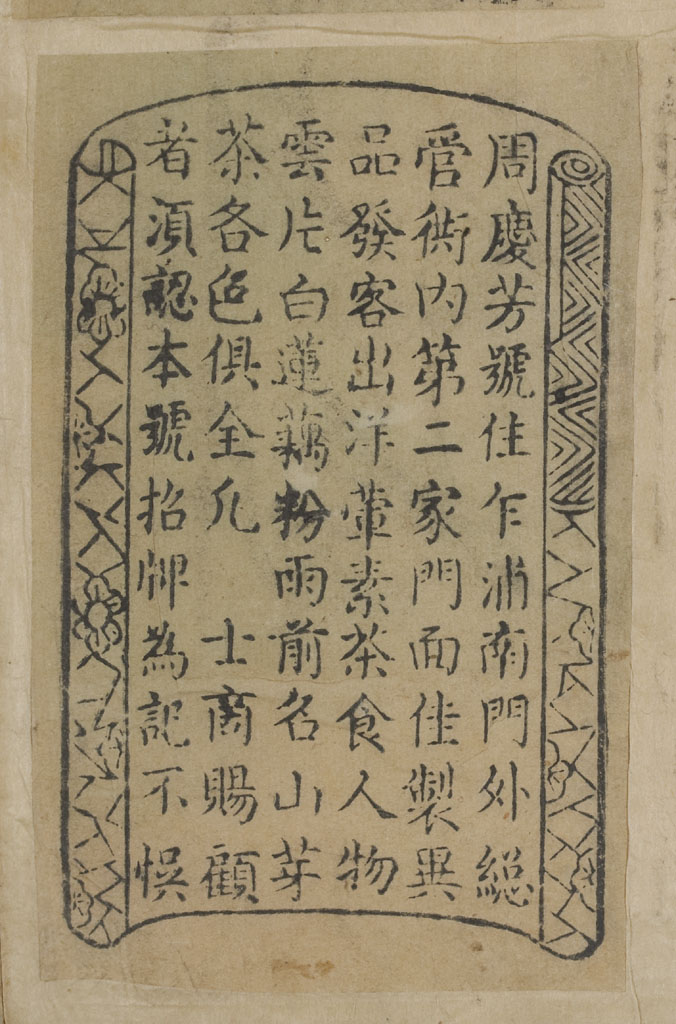 周慶芳號住乍浦南門外總
管衖內第二家門面佳製異
品發客出洋葷素茶食人物
雲片白蓮藕粉雨前名山芽
茶各色俱全凢 士商賜顧
者須認本號招牌為記不悞